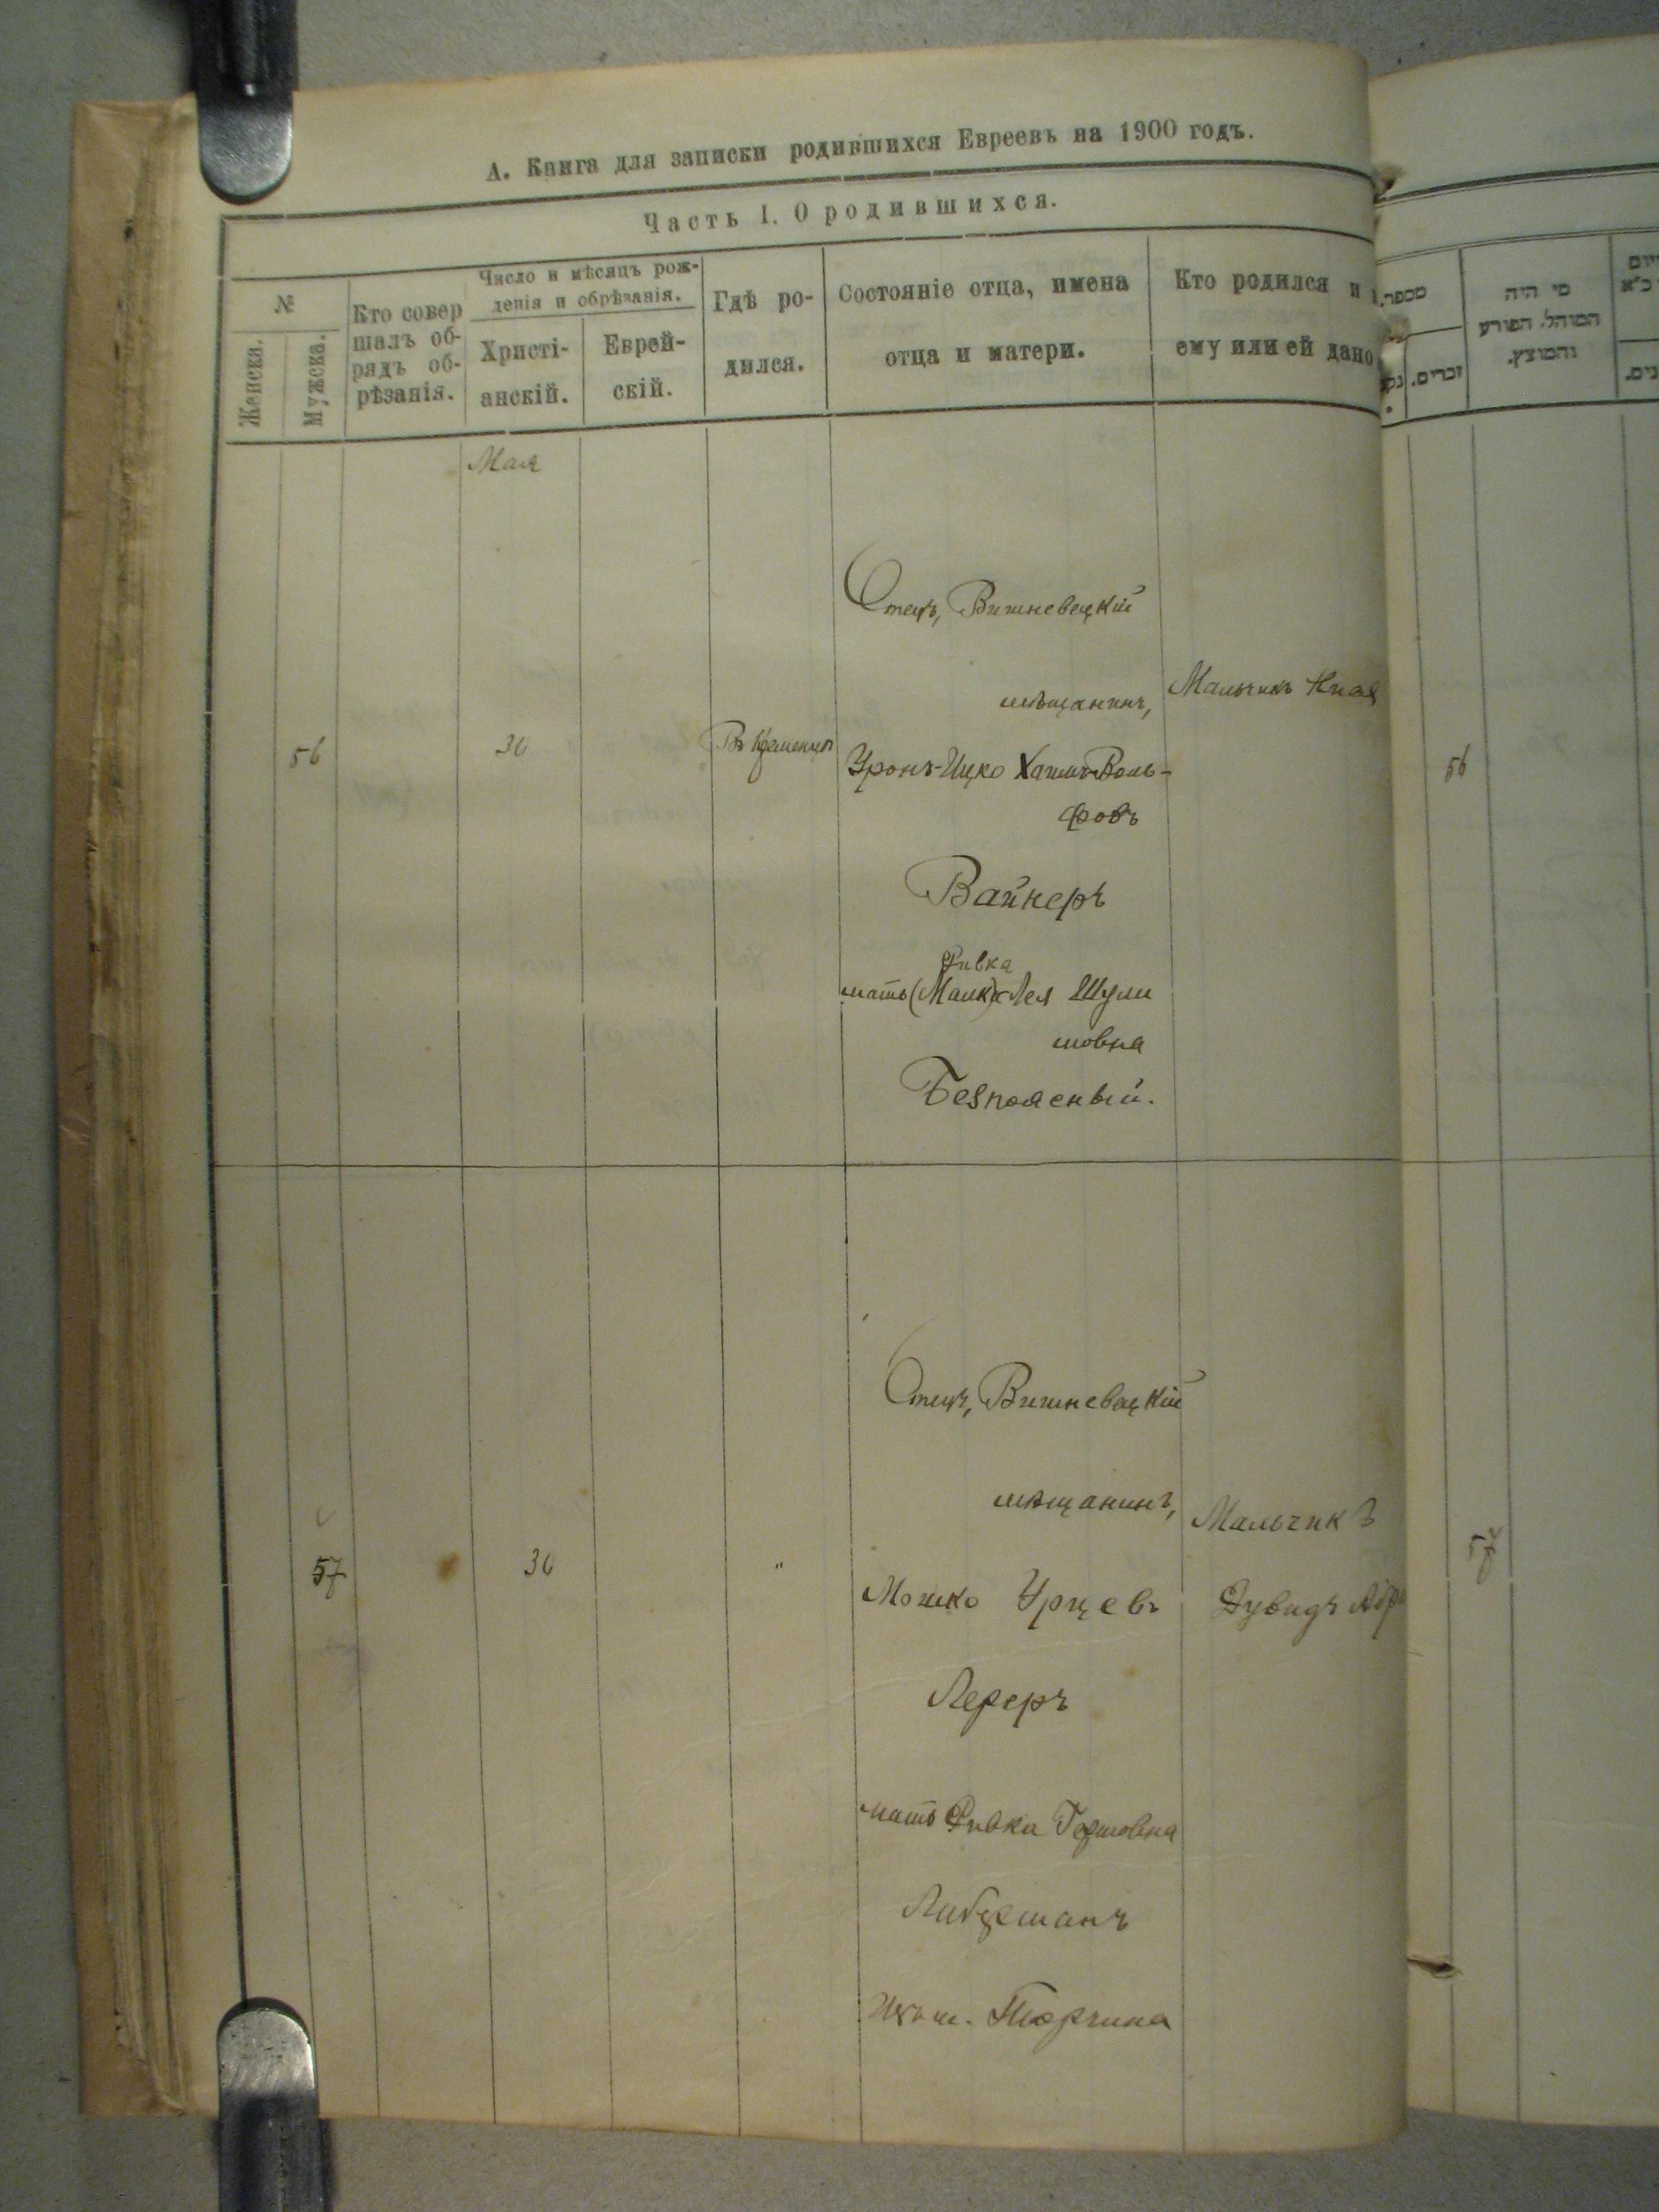 А. Книга для записки родившихся Евреевъ на 1900 годъ.
Часть I. О родившихся.
№
Женска.
Мужска.
Кто совер
шалъ об-
рядъ об-
рѣзанія.
Число и мѣсяцъ рож-
денія и обрѣзанія.
Христі-
анскій.
Еврей-
скій.
Гдѣ ро-
дился.
Состояніе отца, имена
отца и матери.
Кто родился и
ему или ей дано
מספר.
זכרים.
מי היה
המוהל, הפורע
והמוצץ.
Мая
56
30
Въ Кременцѣ
Отецъ, Вишневецкій
мѣщанинъ,
Уронъ-Ицко Хаимъ-Воль-
фовъ
Вайнеръ
Ривка
мать (Малка) Лея Шули
мовна
Безпоясный.
Мальчикъ
56
57
30
"
Отецъ, Вишневецкій
мѣщанинъ,
Мошко Урцевъ
Лереръ
мать Ривка Гершовна
Либерманъ
Мальчикъ
Дувидъ
57